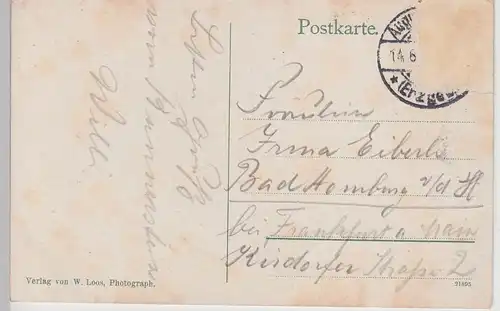 Postkarte.
14.6
(Erzgeb.
Besten Gruß
vom
Willi
Fräulein
Irma Eiberle
Bad Homburg v/d H
bei Frankfurt a Main
Kirdorfer Straße 2
Verlag von W. Loos, Photograph.
21895